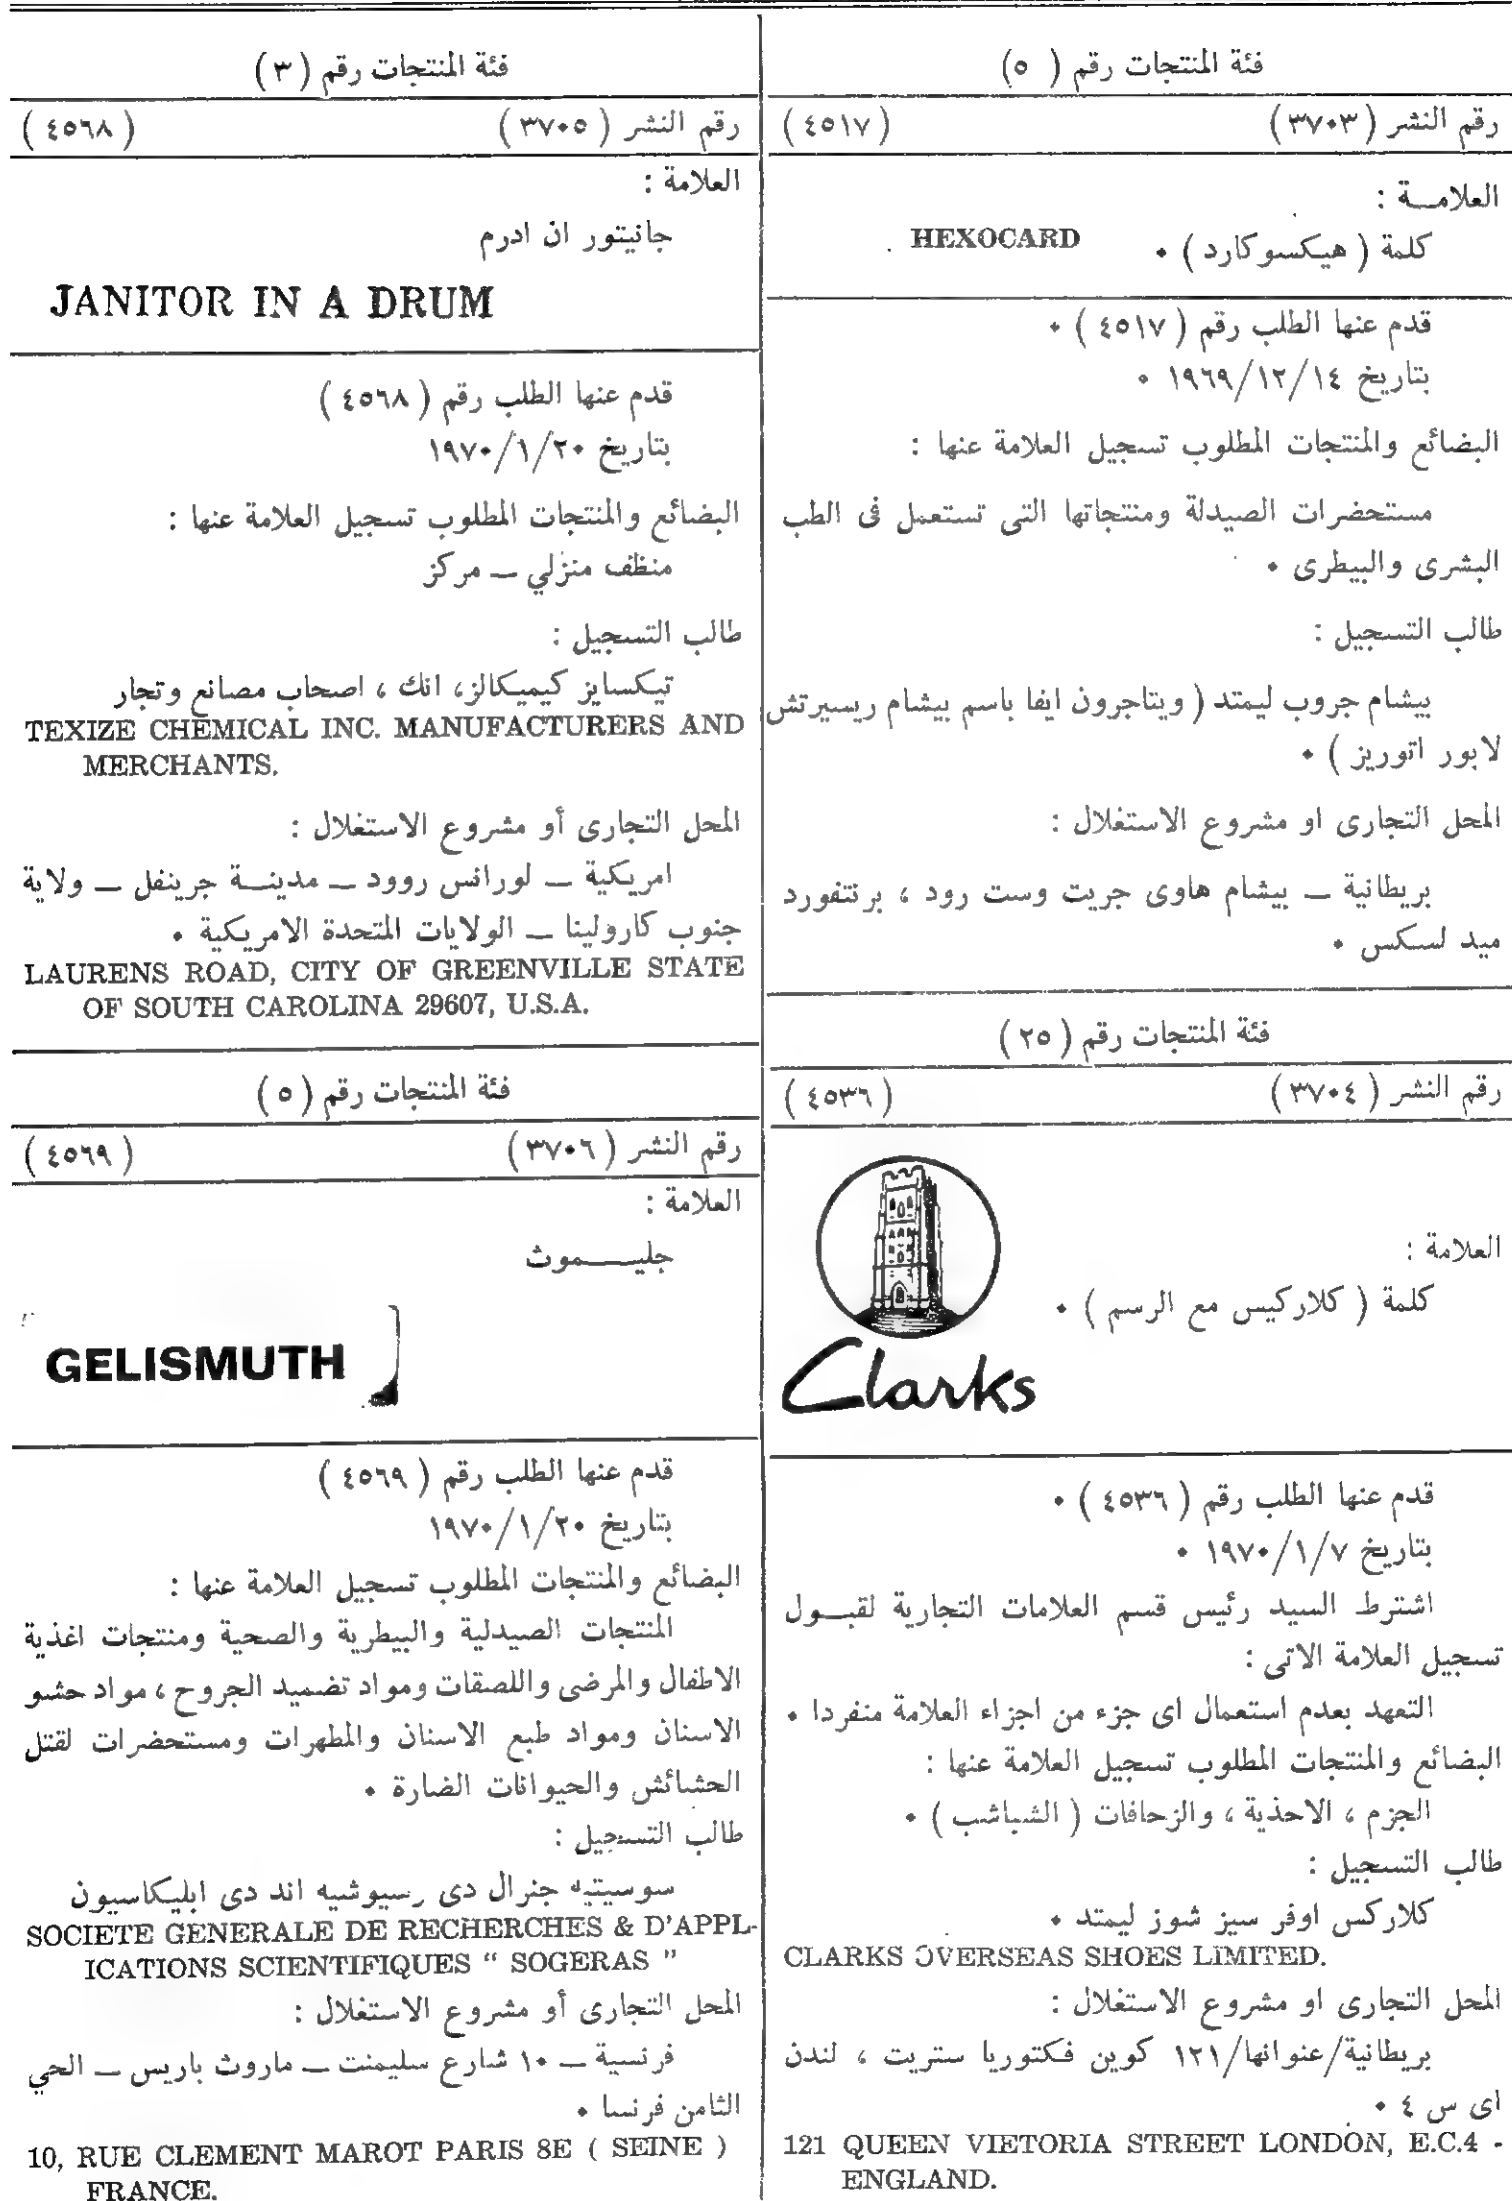 فئة المنتجات رقم ( ٥ )
رقم النشر ( ٣٧٠٣ ) ( ٤٥١٧ )
العلامـة :
كلمة ( هيكسوكارد ) ٠ HEXOCARD
قدم عنها الطلب رقم ( ٤٥١٧ ) ٠
بتاريخ ١٩٦٩/١٢/١٤ ٠
البضائع والمنتجات المطلوب تسجيل العلامة عنها :
مستحضرات الصيدلة ومنتجاتها التى تستعمل فى الطب
البشرى والبيطرى ٠
طالب التسجيل :
بيشام جروب ليمتد ( ويتاجرون ايفا باسم بيشام ريسيرتش
لابور اتوريز ) ٠
المحل التجارى او مشروع الاستغلال :
بريطانية ــ بيشام هاوى جريت وست رود ، برنتفورد
ميد لسكس ٠
فئة المنتجات رقم ( ٢٥ )
رقم النشر ( ٣٧٠٤ ) ( ٤٥٣٦ )
العلامة :
كلمة ( كلاركيس مع الرسم ) ٠
Clarks
قدم عنها الطلب رقم ( ٤٥٣٦ ) ٠
بتاريخ ١٩٧٠/١/٧ ٠
اشترط السيد رئيس قسم العلامات التجارية لقبـول
تسجيل العلامة الاتى :
التعهد بعدم استعمال اى جزء من اجزاء العلامة منفردا ٠
البضائع والمنتجات المطلوب تسجيل العلامة عنها :
الجزم ، الاحذية ، والزحافات ( الشباشب ) ٠
طالب التسجيل :
كلاركس اوفر سيز شوز ليمتد ٠
CLARKS OVERSEAS SHOES LIMITED.
المحل التجارى او مشروع الاستغلال :
بريطانية/عنوانها/١٢١ كوين فكتوريا ستريت ، لندن
اى س ٤ ٠
121 QUEEN VIETORIA STREET LONDON, E.C.4 -
ENGLAND.
فئة المنتجات رقم ( ٣ )
رقم النشر ( ٣٧٠٥ ) ( ٤٥٦٨ )
العلامة :
جانيتور ان ادرم
JANITOR IN A DRUM
قدم عنها الطلب رقم ( ٤٥٦٨ )
بتاريخ ١٩٧٠/١/٢٠
البضائع والمنتجات المطلوب تسجيل العلامة عنها :
منظف منزلي ــ مركز
طالب التسجيل :
تيكسايز كيميكالز، انك ، اصحاب مصانع وتجار
TEXIZE CHEMICAL INC. MANUFACTURERS AND
MERCHANTS.
المحل التجارى أو مشروع الاستغلال :
امريكية ــ لورانس روود ــ مدينـة جرينفل ــ ولاية
جنوب كارولينا ــ الولايات المتحدة الامريكية ٠
LAURENS ROAD, CITY OF GREENVILLE STATE
OF SOUTH CAROLINA 29607, U.S.A.
فئة المنتجات رقم ( ٥ )
رقم النشر ( ٣٧٠٦ ) ( ٤٥٦٩ )
العلامة :
جليـــموث
GELISMUTH
قدم عنها الطلب رقم ( ٤٥٦٩ )
بتاريخ ١٩٧٠/١/٢٠
البضائع والمنتجات المطلوب تسجيل العلامة عنها :
المنتجات الصيدلية والبيطرية والصحية ومنتجات اغذية
الاطفال والمرضى واللصقات ومواد تضميد الجروح ، مواد حشو
الاسنان ومواد طبع الاسنان والمطهرات ومستحضرات لقتل
الحشائش والحيوانات الضارة ٠
طالب التسجيل :
سوسيتيه جنرال دى رسيوشيه اند دى ابليكاسيون
SOCIETE GENERALE DE RECHERCHES & D'APPL-
ICATIONS SCIENTIFIQUES " SOGERAS "
المحل التجارى أو مشروع الاستغلال :
فرنسية ــ ١٠ شارع سليمنت ــ ماروث باريس ــ الحي
الثامن فرنسا ٠
10, RUE CLEMENT MAROT PARIS 8E ( SEINE )
FRANCE.